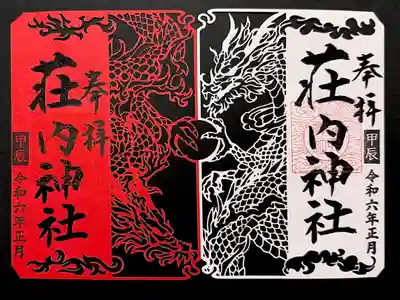 奉拝
荘内神社
甲辰
令和六年正月
奉拝
荘内神社
甲辰
令和六年正月